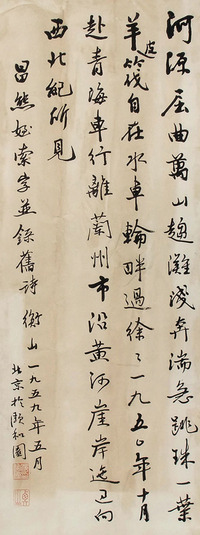 河源屈曲萬山趨灘淺奔湍急跳珠一葉
羊皮筏自在水車輪畔過徐〻一九五〇年十月
赴青海車行離蘭州市沿黄河崖岸迤西向
西北紀所見
昌熊姪索字並錄舊詩 衡山 一九五九年五月
北京於頤和園